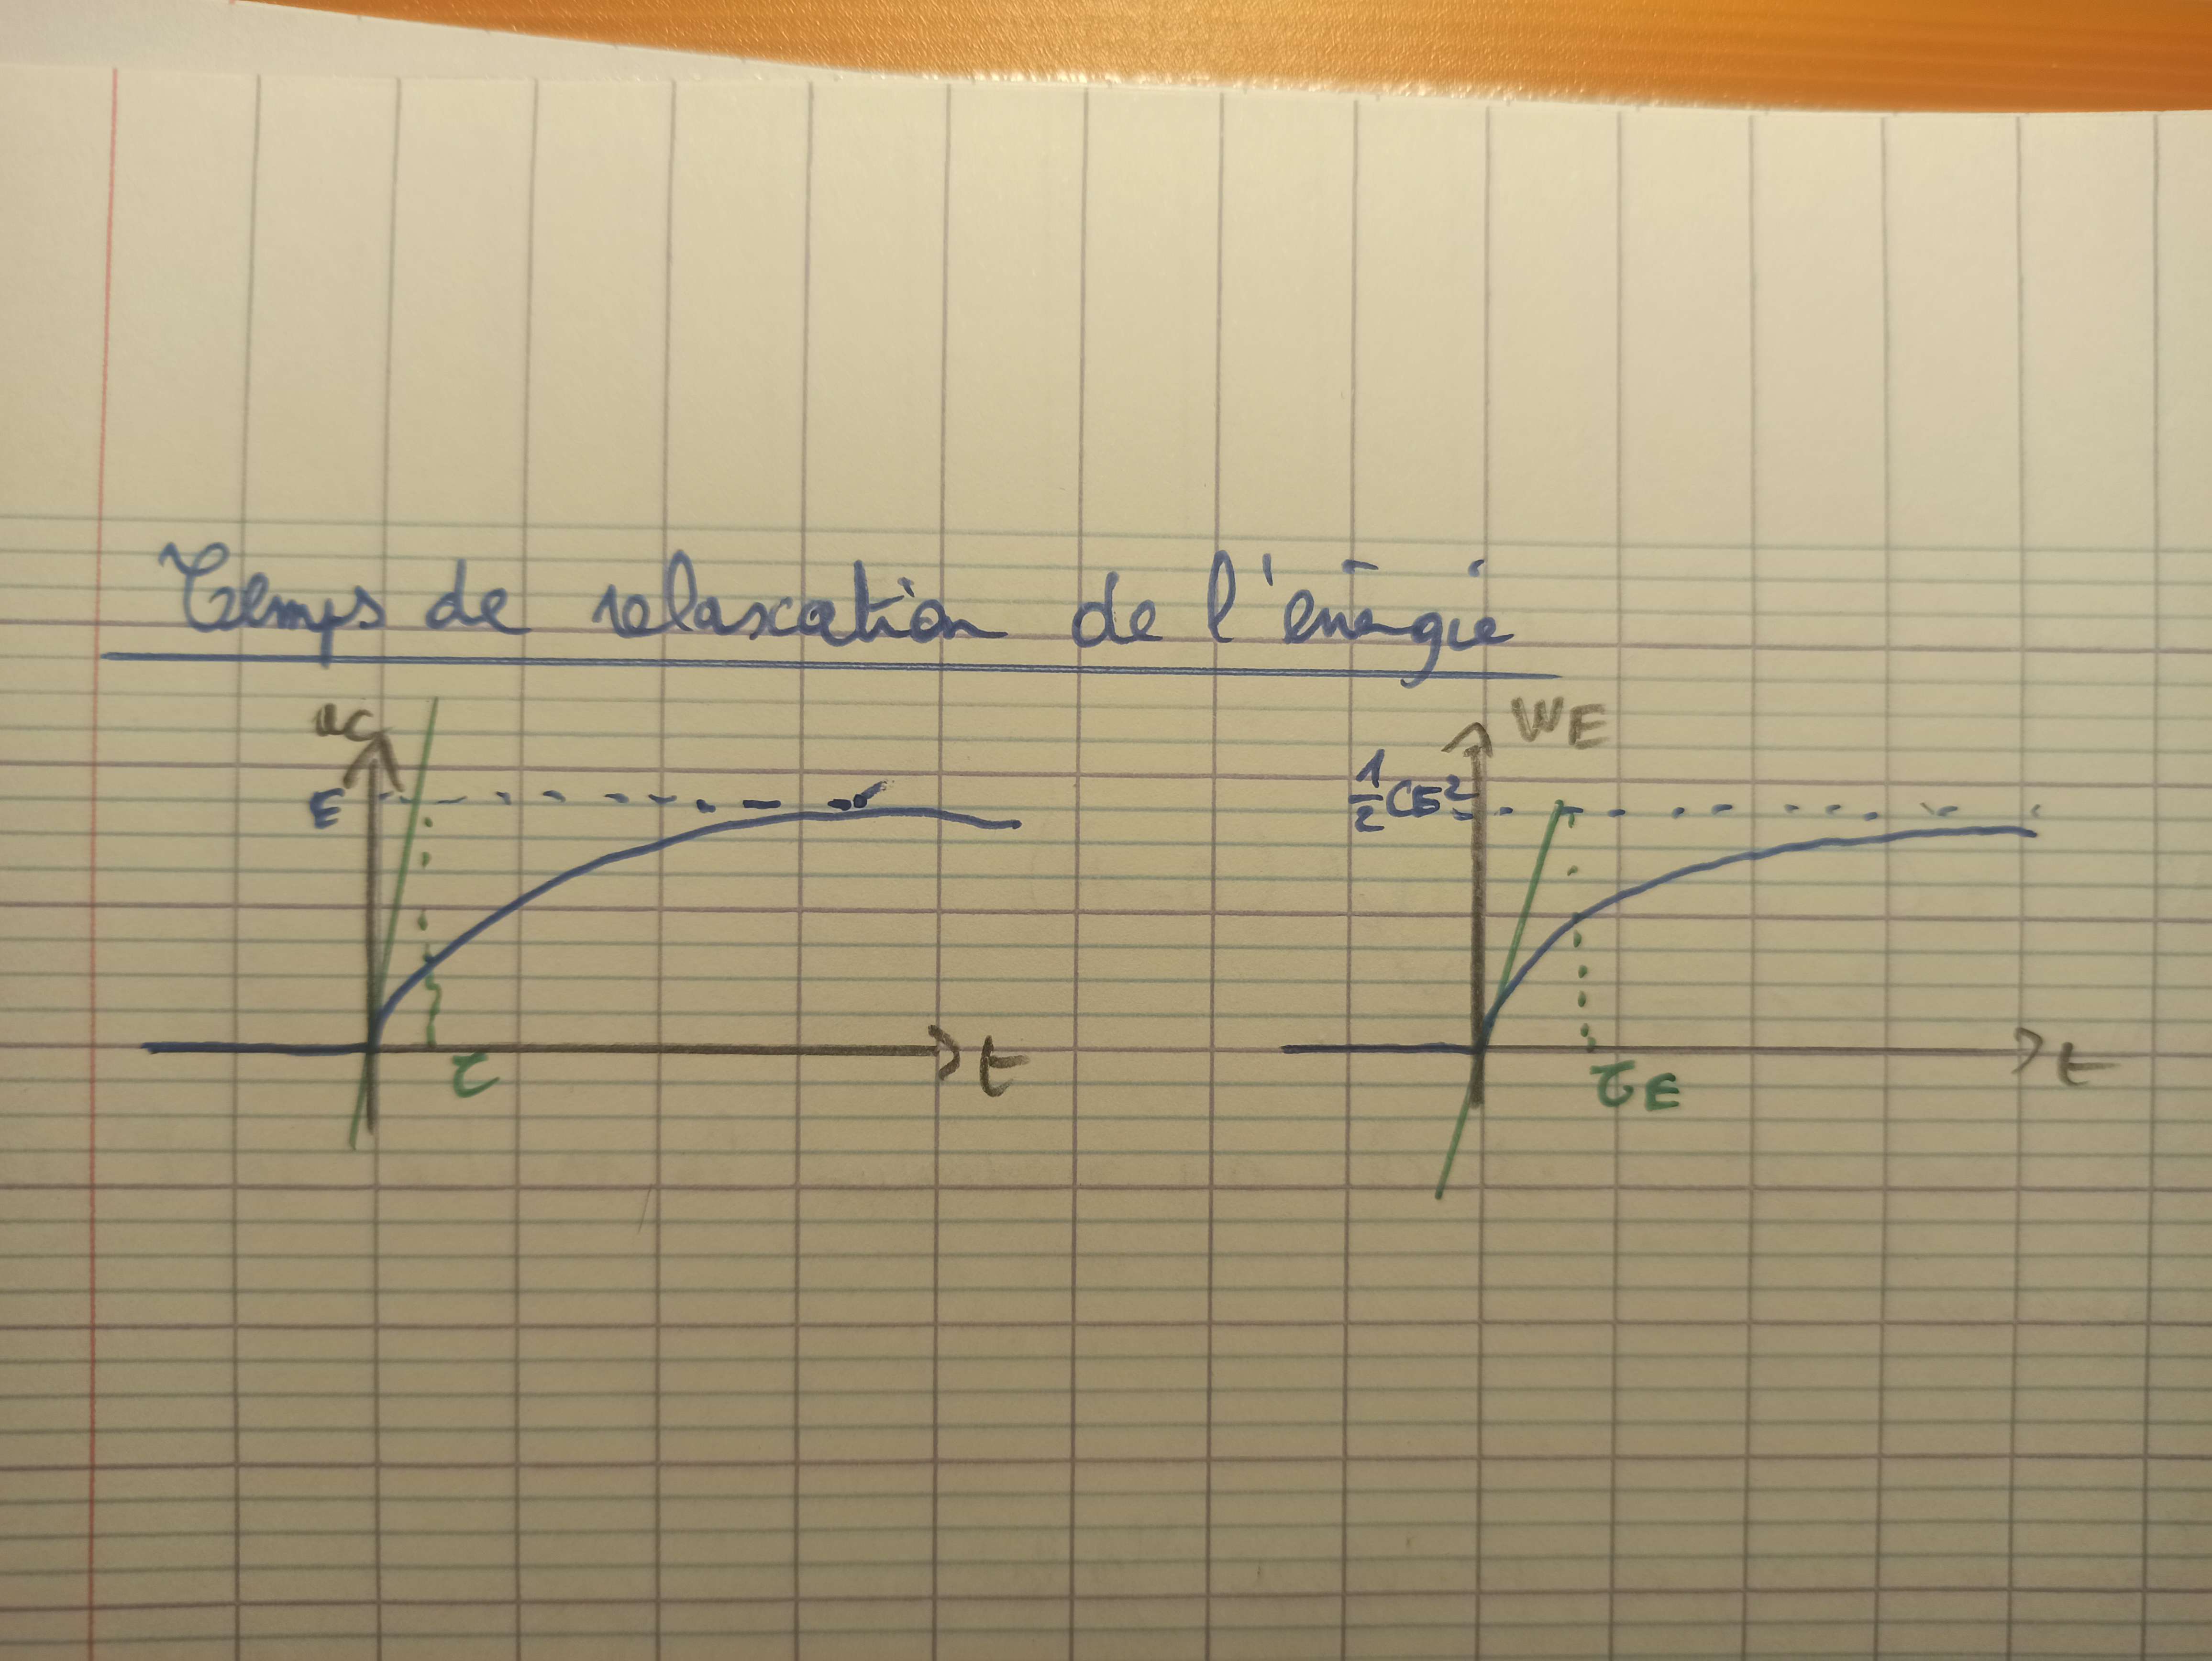 Temps de relaxation de l'énergie
uc
E
τ
t
WE
1/2 CE²
τE
t